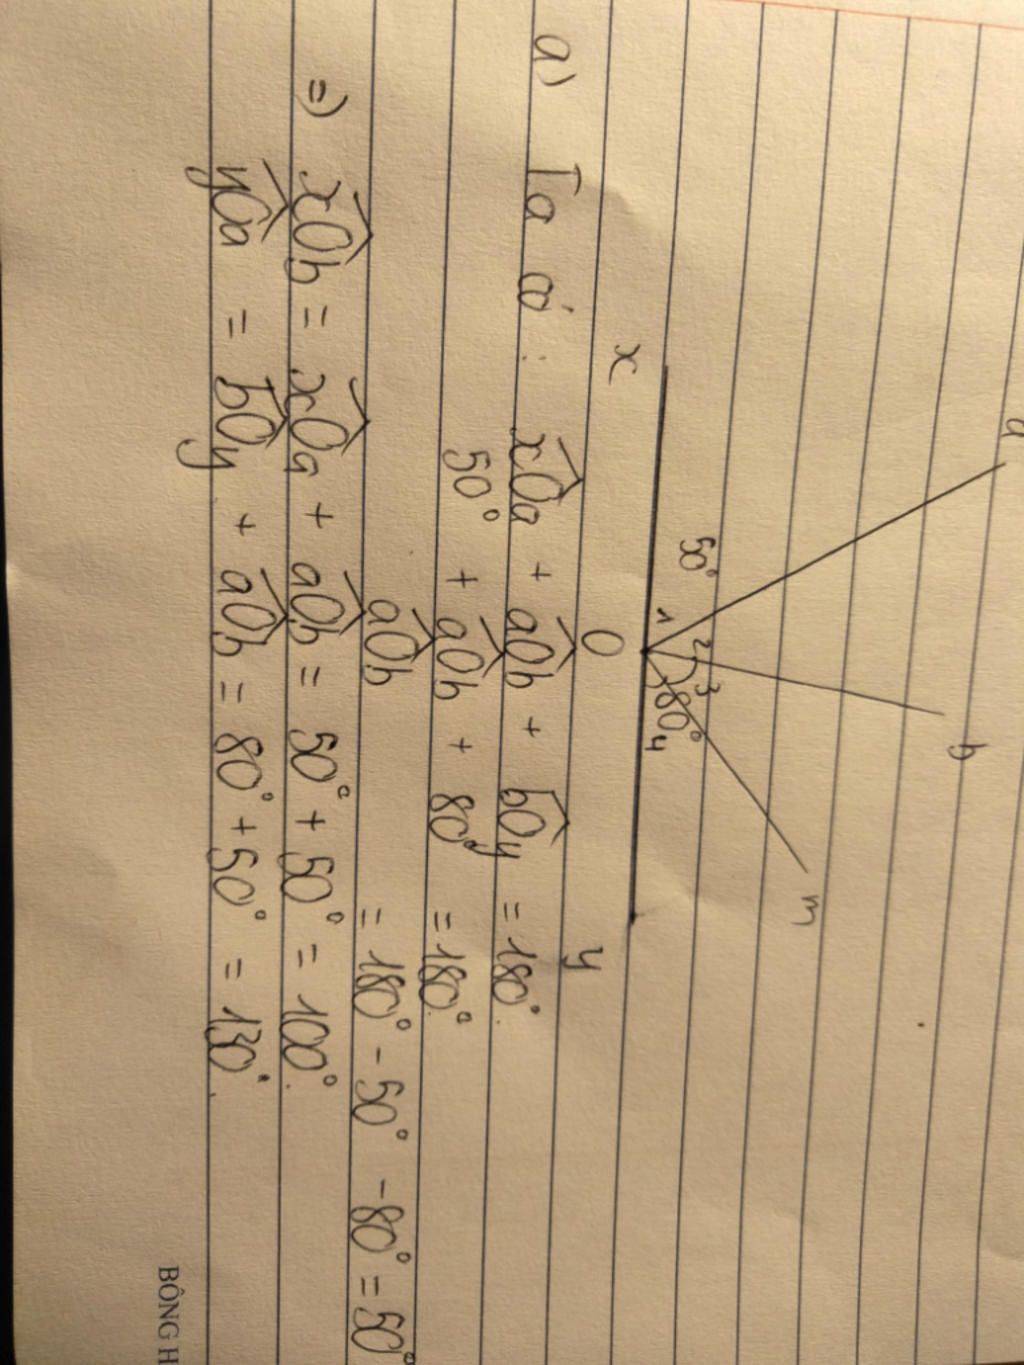 a
b
m
50°
1
2
3
80°
4
x
O
y
a) Ta có: xOa + aOb + bOy = 180°.
50° + aOb + 80° = 180°.
aOb = 180° - 50° - 80° = 50°
=) xOb = xOa + aOb = 50° + 50° = 100°.
yOa = bOy + aOb = 80° + 50° = 130°.